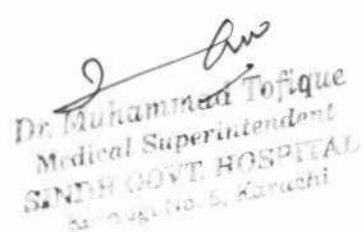 Dr. Muhammad Tofique
Medical Superintendent
SINDH GOVT. HOSPITAL
Karachi